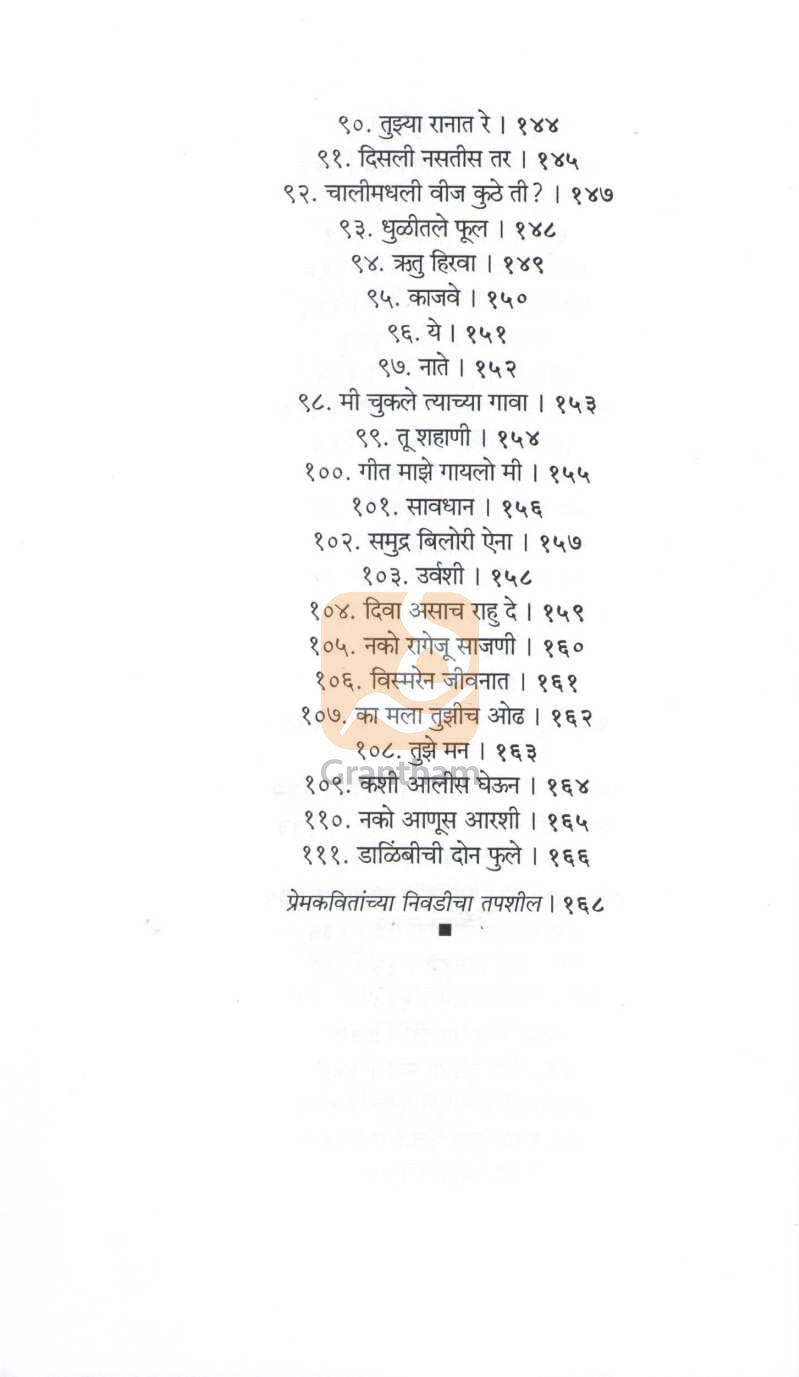 ९०. तुझ्या रानात रे । १४४
९१. दिसली नसतीस तर । १४५
९२. चालीमधली वीज कुठे ती? । १४७
९३. धुळीतले फूल । १४८
९४. ऋतु हिरवा । १४९
९५. काजवे । १५०
९६. ये । १५१
९७. नाते । १५२
९८. मी चुकले त्याच्या गावा । १५३
९९. तू शहाणी । १५४
१००. गीत माझे गायलो मी । १५५
१०१. सावधान । १५६
१०२. समुद्र बिलोरी ऐना । १५७
१०३. उर्वशी । १५८
१०४. दिवा असाच राहु दे । १५९
१०५. नको रागेजू साजणी । १६०
१०६. विस्मरेन जीवनात । १६१
१०७. का मला तुझीच ओढ । १६२
१०८. तुझे मन । १६३
Grantham
१०९. कशी आलीस घेऊन । १६४
११०. नको आणूस आरशी । १६५
१११. डाळिंबीची दोन फुले । १६६
प्रेमकवितांच्या निवडीचा तपशील । १६८